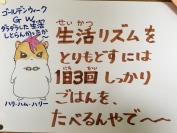 ゴールデンウィーク
GW
ダラダラした生活
しとらんかったか
せいかつ
生活リズムを
とりもどすには
1日3回しっかり
ごはんを、
たべるんやで〜
ハリ・ハム・ハリー